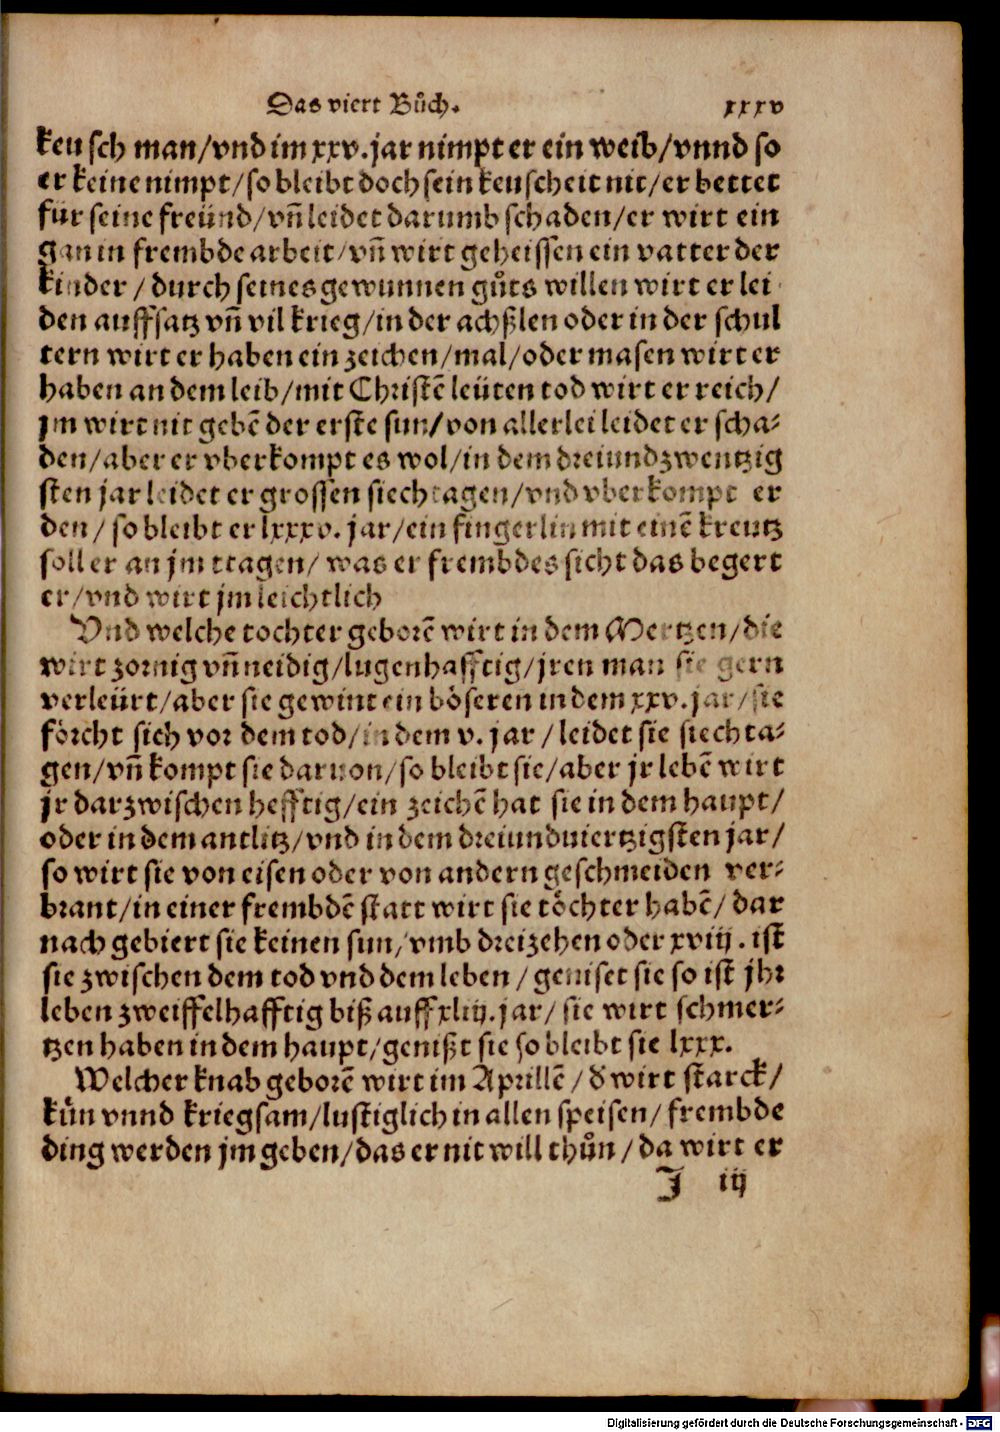 Das viert Bůch.
xxxv
keusch man/vnd im xxv.jar nimpt er ein weib/vnnd so
er keine nimpt/so bleibt doch sein keuscheit nit/er bettet
für seine freünd/vñ leidet darumb schaden/er wirt ein
gan in frembde arbeit/vñ wirt geheissen ein vatter der
kinder/durch seines gewunnen gůts willen wirt er lei
den auffsatz vñ vil krieg/in der achßlen oder in der schul
tern wirt er haben ein zeichen/mal/oder masen wirt er
haben an dem leib/mit Christē leüten tod wirt er reich/
jm wirt nit gebē der erste sun/von allerlei leidet er scha⸗
den/aber er vberkompt es wol/in dem dreiundzwentzig
sten jar leidet er grossen siechtagen/vnd vberkompt er
den/so bleibt er lxxxv. jar/ein fingerlin mit einē kreutz
soll er an jm tragen/was er frembdes sicht das begert
er/vnd wirt jm leichtlich
Vnd welche tochter geborē wirt in dem Mertzen/die
wirt zornig vñ neidig/lugenhafftig/jren man sie gern
verleürt/aber sie gewint ein böseren in dem xxv.jar/sie
förcht sich vor dem tod/in dem v. jar/leidet sie siechta⸗
gen/vñ kompt sie daruon/so bleibt sie/aber jr lebē wirt
jr darzwischen hefftig/ein zeichē hat sie in dem haupt/
oder in dem antlitz/vnd in dem dreiunduiertzigsten jar/
so wirt sie von eisen oder von andern geschmeiden ver⸗
brant/in einer frembdē statt wirt sie töchter habē/dar
nach gebiert sie keinen sun/vmb dreizehen oder xviij. ist
sie zwischen dem tod vnd dem leben/geniset sie so ist jhr
leben zweiffelhafftig biß auff xliij.jar/sie wirt schmer⸗
tzen haben in dem haupt/genißt sie so bleibt sie lxxx.
Welcher knab geborē wirt im Aprillē/d̕ wirt starck/
kün vnnd kriegsam/lustiglich in allen speisen/frembde
ding werden jm geben/das er nit will thůn/da wirt er
J iij
Digitalisierung gefördert durch die Deutsche Forschungsgemeinschaft - DFG